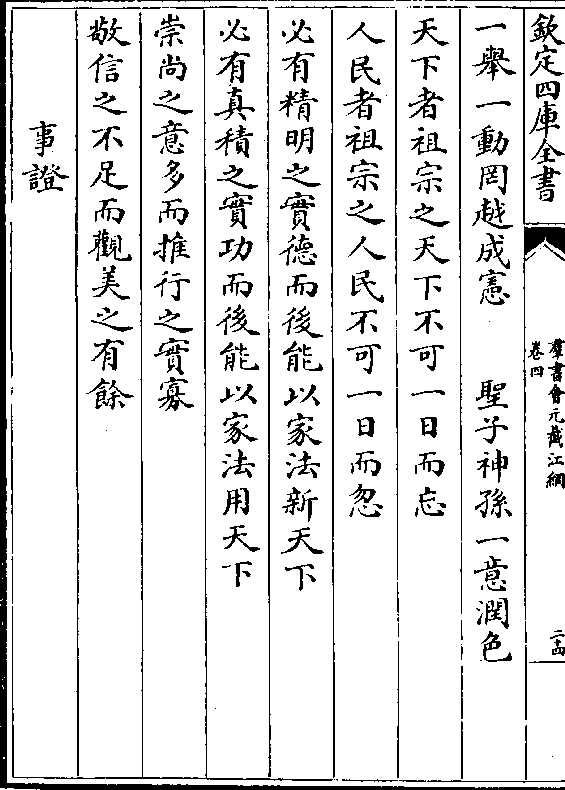 欽定四庫全書
羣書會元截江網
卷四
二十四
一舉一動罔越成憲　聖子神孫一意潤色
天下者祖宗之天下不可一日而忘
人民者祖宗之人民不可一日而忽
必有精明之實德而後能以家法新天下
必有真積之實功而後能以家法用天下
崇尚之意多而推行之實寡
敬信之不足而觀美之有餘
事證